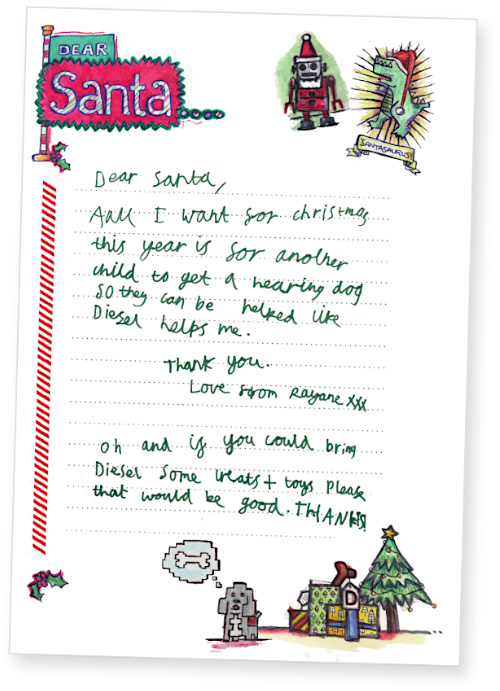 DEAR
Santa
SANTASAURUS
Dear Santa,
Aall I want for christmas
this year is for another
child to get a hearing dog
so they can be helked like
Diesel helps me.
Thank you.
Love from Rayane xxx
oh and if you could bring
Diesel some treats + toys please
that would be good. ThANks!
D